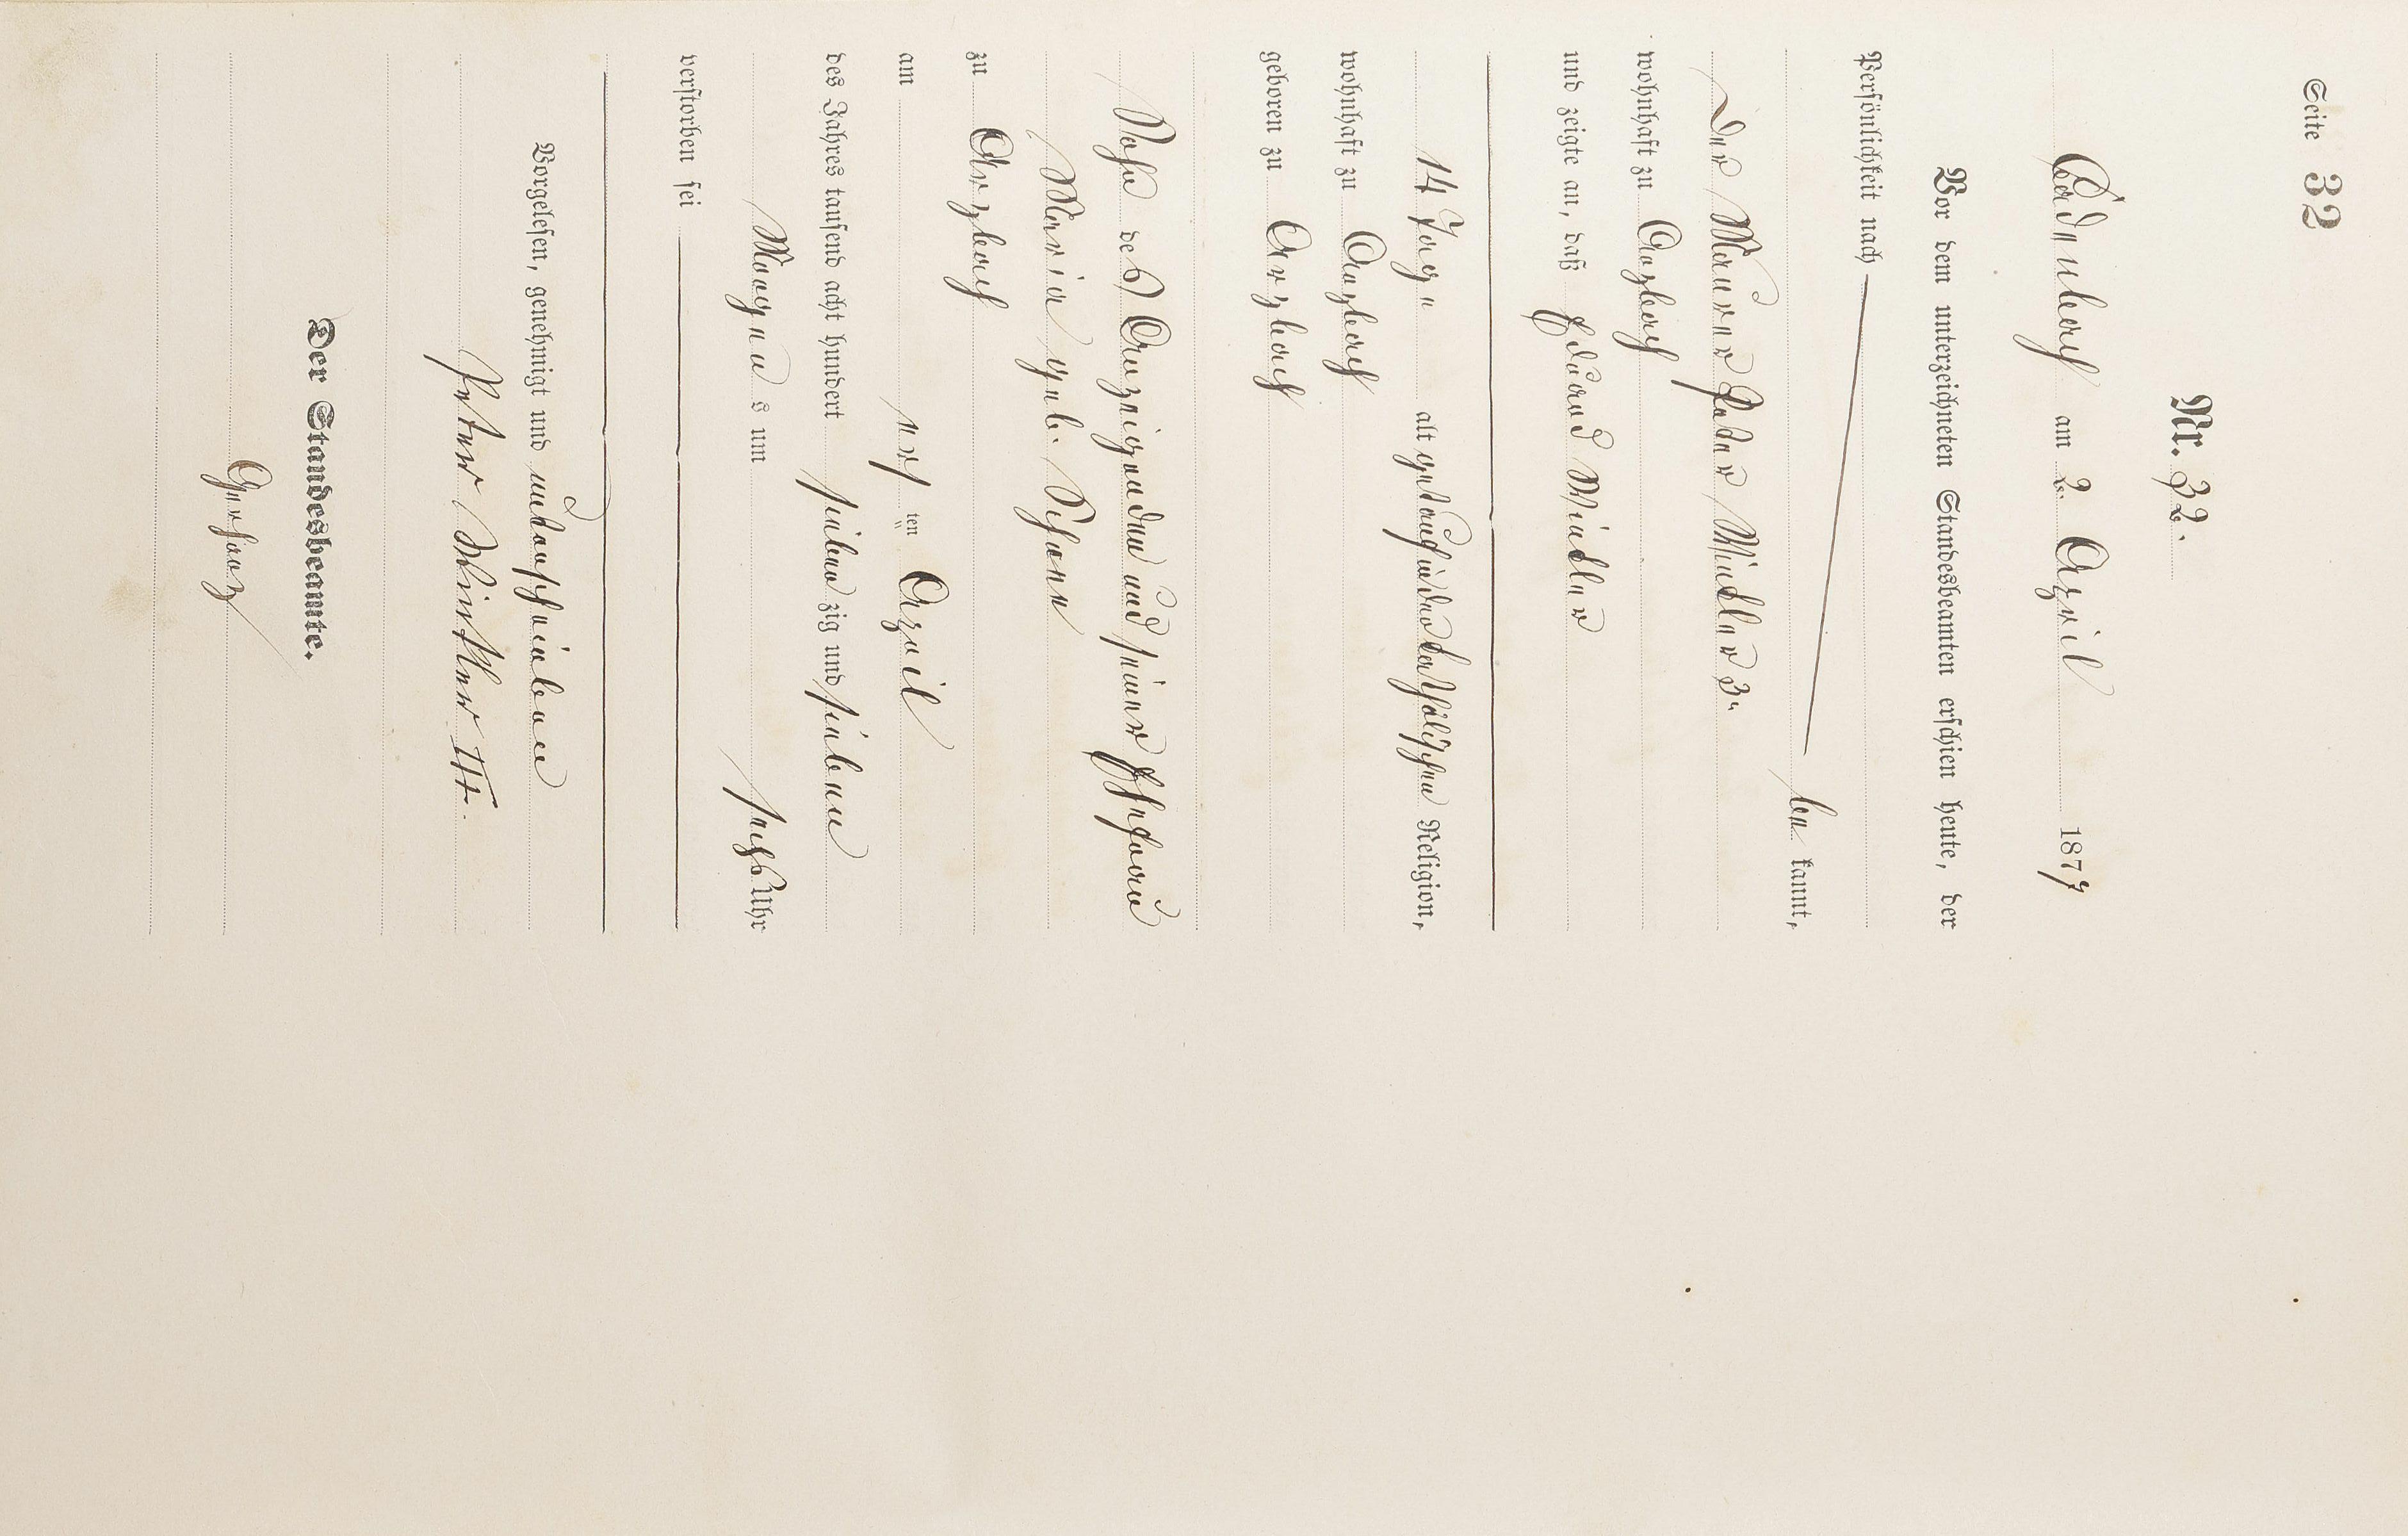 Seite 32
Nr. 32.
Cadenbach am 2. April 1877
Vor dem unterzeichneten Standesbeamten erschien heute, der
Persönlichkeit nach
be kannt,
der Maurer Peter Winkler 3.
wohnhaft zu Arzbach
und zeigte an, daß Eduard Winkler
14 Tage alt katholischer Religion,
wohnhaft zu Arzbach
geboren zu Arzbach
Sohn des Anzeigenden und seiner Ehefrau
Maria geb.
zu Arzbach
am ersten April
des Jahres tausend acht hundert sieben zig und sieben
Morgen s um sechs Uhr
verstorben sei
Vorgelesen, genehmigt und unterschrieben
Peter Winkler III.
Der Standesbeamte.